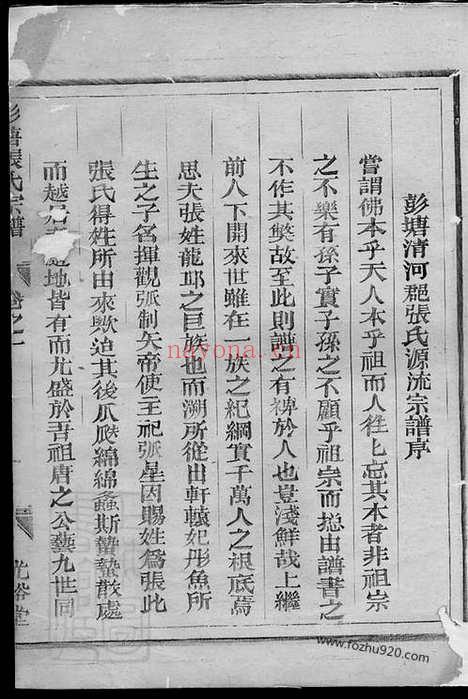 彭塘清河郡張氏源流宗譜序
嘗謂佛本乎天人本乎祖而人徃匕忘其本者非祖宗
之不樂有孫子實子孫之不顧乎祖宗而揔由譜書之
不作其獘故至此則譜之有裨於人也豈淺鮮哉上繼
前人下開來世雖在一族之紀綱實千萬人之根底焉
思夫張姓龍邱之巨族也而溯所從由軒轅妃彤魚所
生之子名揮觀弧制矢帝使主祀弧星因賜姓爲張此
張氏得姓所由來歟迨其後瓜瓞綿綿螽斯蟄蟄散處
而越 地皆有而尤盛於吾祖唐之公藝九世同
張氏宗譜 卷之一 光裕堂
nayona.cn
www.fozhu920.com